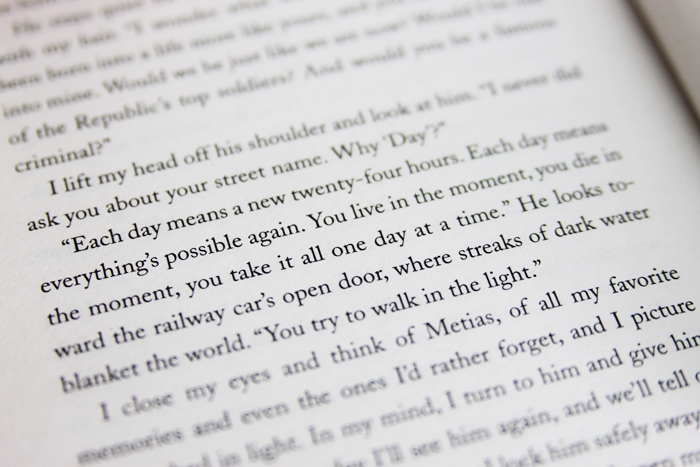 with my hair. "I wonder what
been born into a life more like yours, and you
into mine. Would we be just like we are now? Would I be one
of the Republic's top soldiers? And would you be a famous
criminal?"
I lift my head off his shoulder and look at him. "I never did
ask you about your street name. Why 'Day'?"
"Each day means a new twenty-four hours. Each day means
everything's possible again. You live in the moment, you die in
the moment, you take it all one day at a time." He looks to-
ward the railway car's open door, where streaks of dark water
blanket the world. "You try to walk in the light."
I close my eyes and think of Metias, of all my favorite
memories and even the ones I'd rather forget, and I picture
in light. In my mind, I turn to him and give him
I'll see him again, and we'll tell
lock him safely away